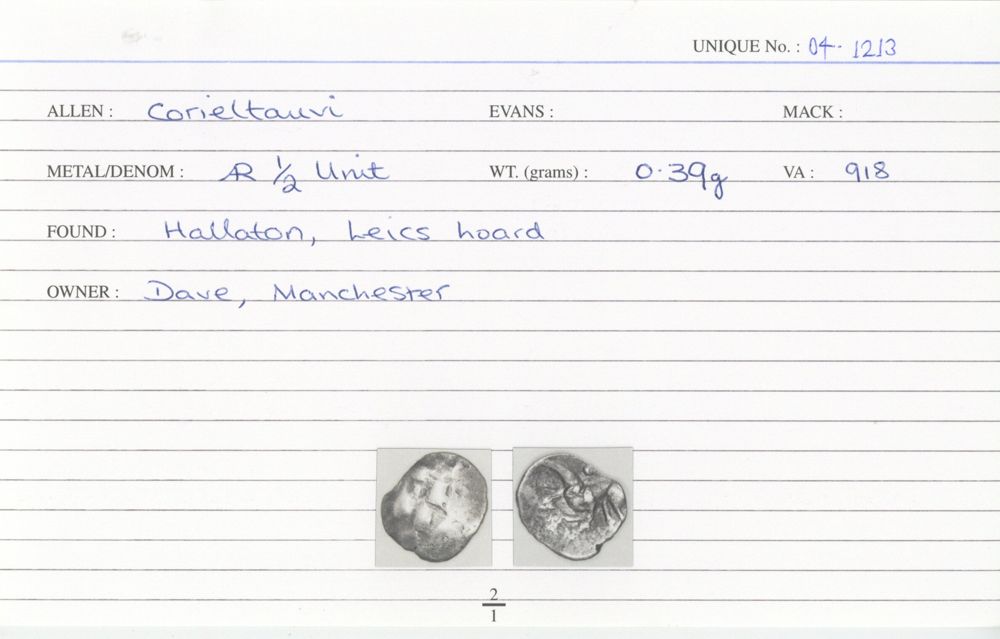 UNIQUE No. : 04- 1213
ALLEN : Corieltauvi EVANS : MACK :
METAL/DENOM : AR 1/2 Unit WT. (grams) : 0.39g VA : 918
FOUND : Hallaton, Leics hoard
OWNER : Dave, Manchester
2
1